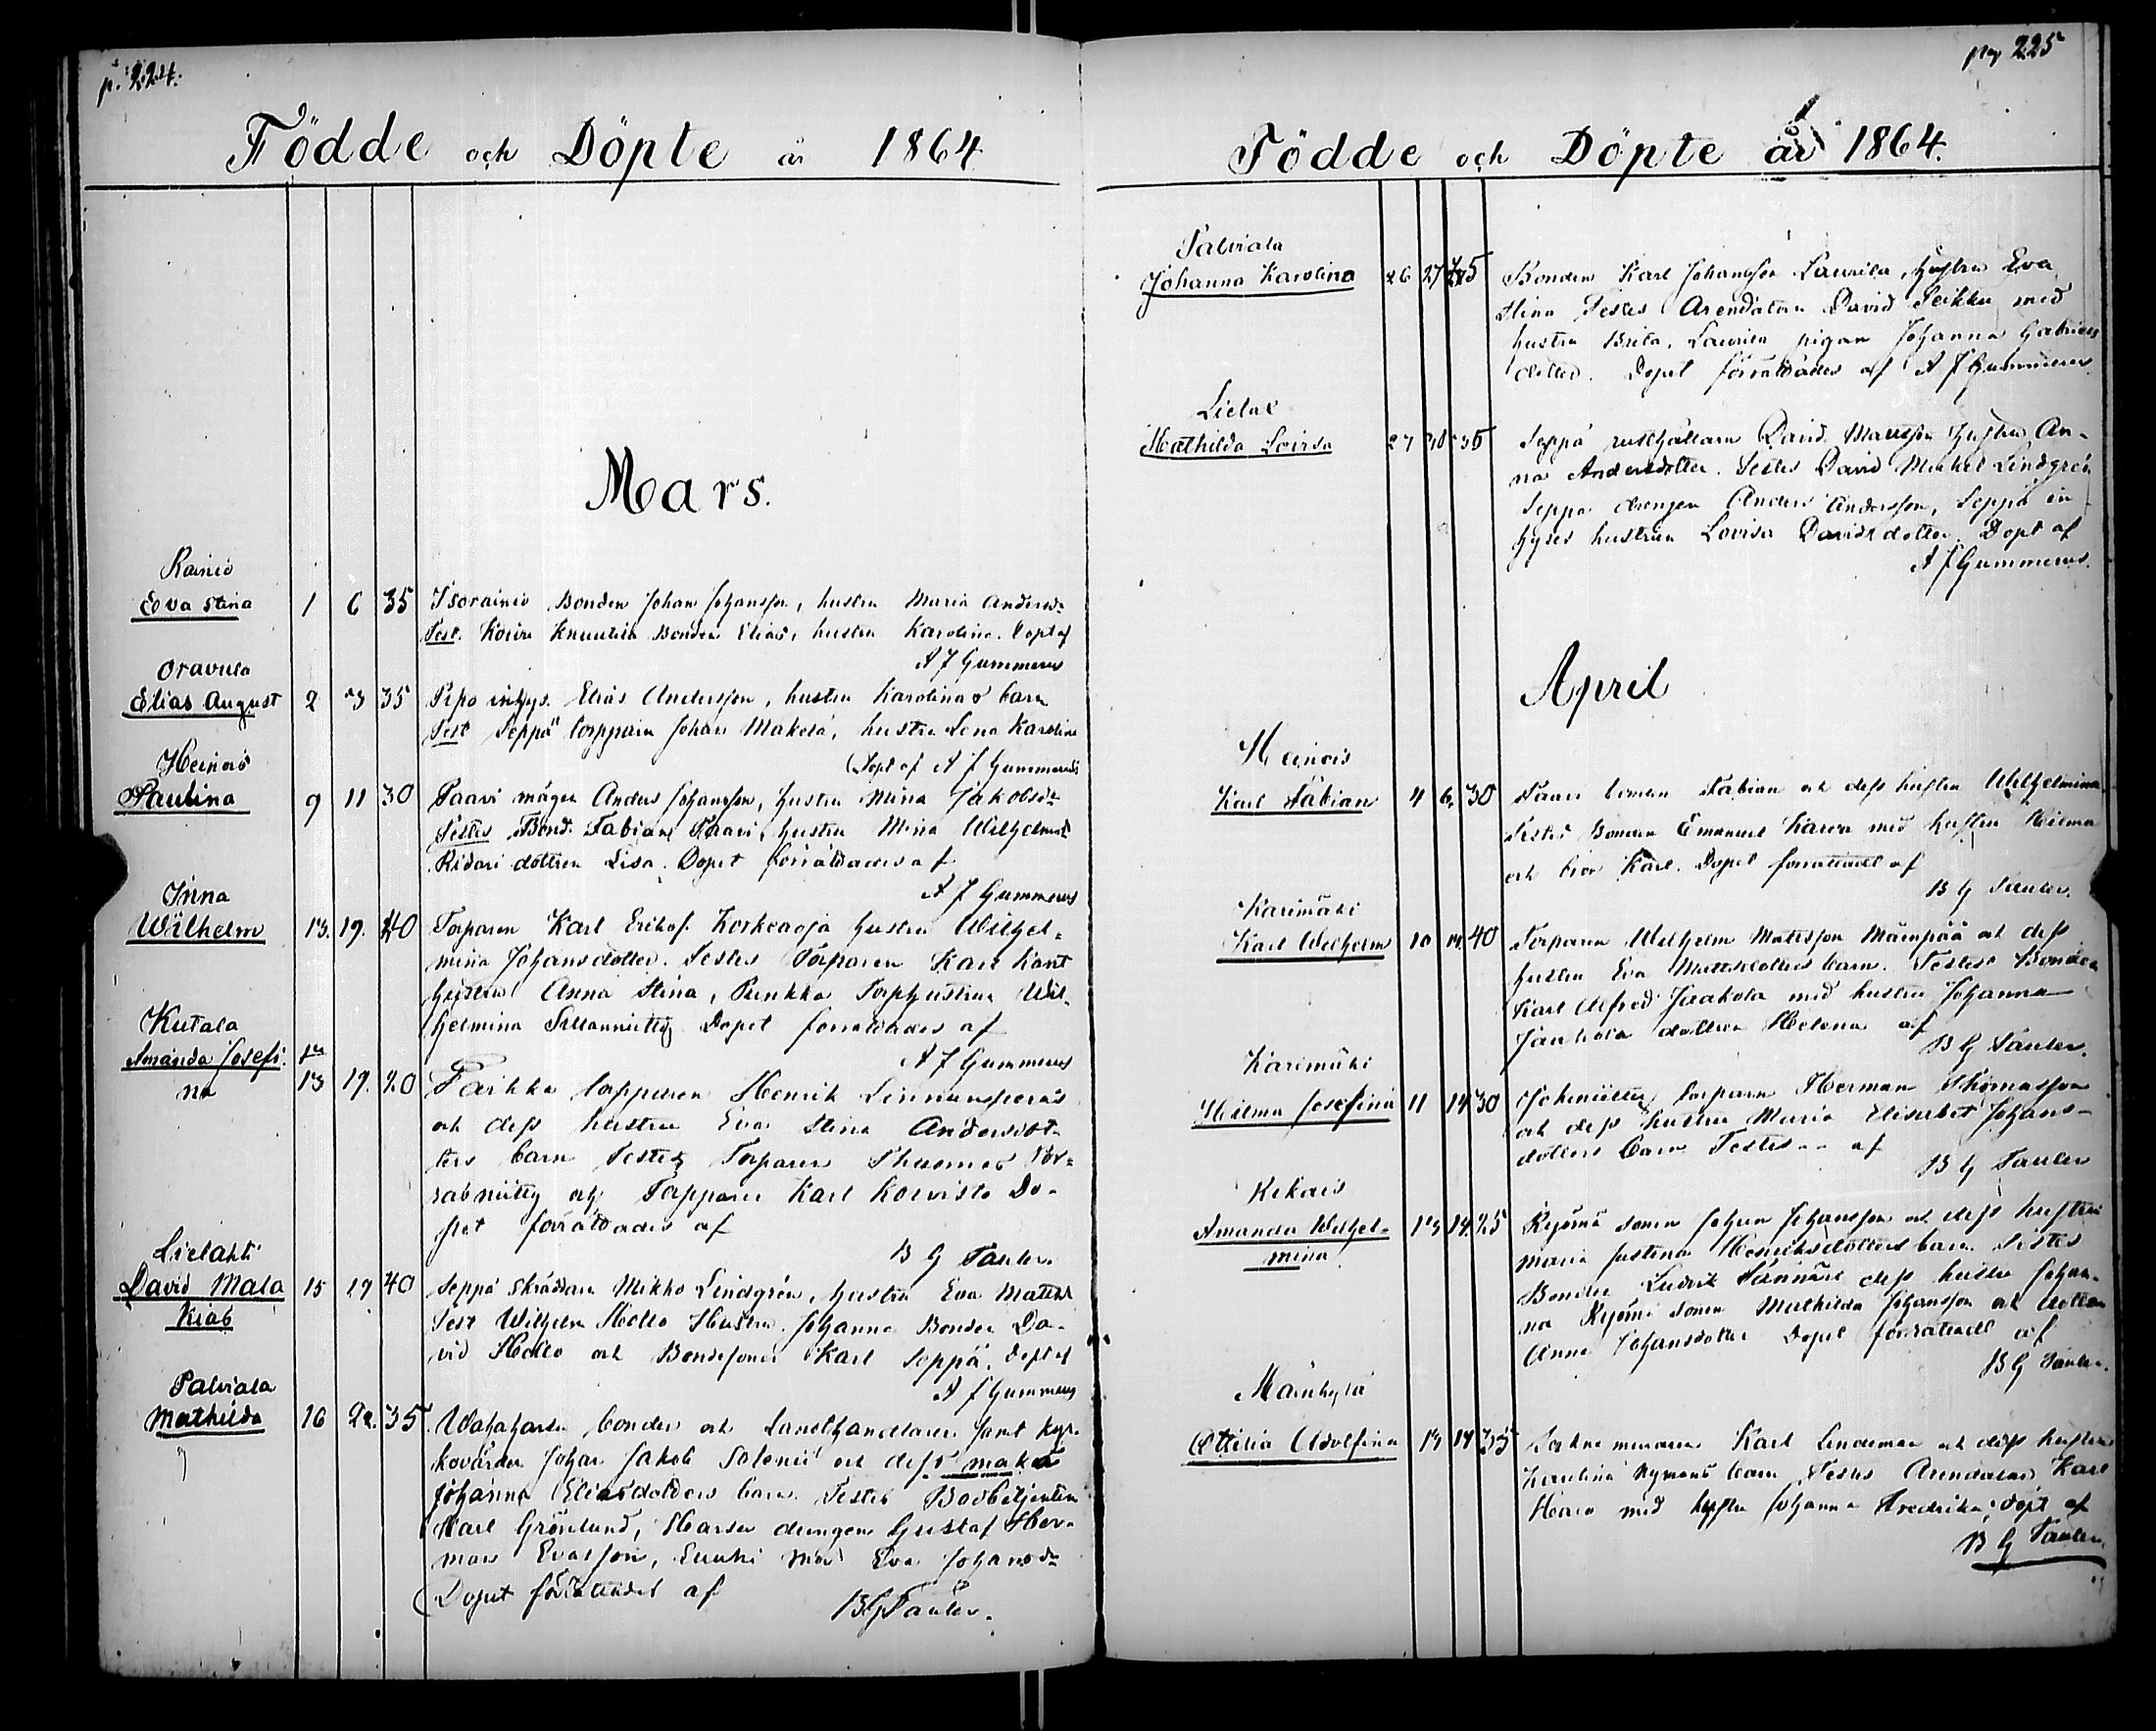 p. 224.
Födde och Döpte år 1864
Mars.
Rainio
Eva Stina 1 6 35 Isorainio Bonden Johan Johansson, hustru Maria Andersd.
Test. Koivu Knuutila Bonden Elias, hustru Karolina. Döpt af
A J Gummerus
Oravula
Elias August 2 3 35 Pipo inhys. Elias Andersson, hustru Karolinas barn
Test Seppä torpparn Johan Makelä, hustru Lena Karolina
Döpt af A J Gummerus
Heinois
Paulina 9 11 30 Paavi mågen Anders Johansson, hustru Mina Jakobsd.
Testes Bond. Fabian Paavi, hustru Mina Wilhelmsd.
Ridari dottren Lisa. Dopet förrättades af
A J Gummerus
Jrna
Wilhelm 13. 19. 40 Torparen Karl Erikss. Korkeaoja hustru Wilhel-
mina Johansdotter. Testes Torparen Karl Kant
hustru Anna Stina, Punkka Torphustrun Wil-
helmina Dopet förrättades af
A J Gummerus
Kutala
Amanda Josefi-
na 13 19. 20 Paikka torpparen Henrik Linnunperäs
och dess hustru Eva Stina Andersdot-
ters barn Testes Torparen Thuomas
och Torpparen Karl Koivisto Do-
pet förrättades af
B G Tauler.
Lielahti
David Mala
kias 15 19 40 Seppä Skräddarn Mikko Lindgrén, hustru Eva Mattsd
Test Wilhelm Hollo Hustru Johanna Bonden Da-
vid Hollo och Bondesonen Karl Seppä. Döpt af
A J Gummerus
Palviala
Mathilda 16 22. 35 Wahaharsu bonden och Landthandlaren samt kyr-
kovärden Johan Jakob Salonii och dess maka
Johanna Eliasdotters barn. Testes Bodbetjenten
Karl Grönlund, Harsu drengen Gustaf Her-
man Evasson, Eva Johansd.
Dopet förrättadt af
B G Tauler.
pag 225
Födde och Döpte år 1864.
Palviala
Johanna Karolina 26 27 25 Bonden Karl Johansson Laurila, hustru Eva
Stina Testes Arendatorn David Seikku med
hustru Brita, Laurila pigan Johanna Gabriels
dotter. Dopet förrättades af A J Gummerus.
Lielax
Mathilda Lovisa 27 30 35 Seppä rusthållarn David Mattsson hustru An-
na Andersdotter. Testes David Mikael Lindgrén
Seppä drengen Anders Andersson, Seppä in-
hyses hustrun Lovisa Davidsdotter. Döpt af
A J Gummerus.
April
Heinois
Karl Fabian 4 6. 30 Paavi bonden Fabian och dess hustru Wilhelmina
Testes Bonden Emanuel Karra med hustru Hilma
och bror Karl. Dopet förrättadt af
B G Tauler.
Karimäki
Karl Wilhelm 10 14. 40 Torparen Wilhelm Mattsson Mämpää och dess
hustru Eva Mattsdotters barn. Testes Bonden
Karl Alfred Jaakola med hustru Johanna
Jaakola dottren Helena af
B G Tauler.
Karimäki
Hilma Josefina 11 14 30 Jokiniitty torparn Herman Thomasson
och dess hustru Maria Elisabet Johans-
dotters barn Testes -- af
B G Tauler
Kikois
Amanda Wilhel-
mina 13 14. 25 Kyömä sonen Johan Johansson och dess hustru
Maria Justina Henriksdotters barn. Testes
Bonden Ludvik Sännäri dess hustru Johan-
na Kyömi sonen Mathilda Johansson och dottren
Anna Johansdotter Dopet förrättadt af
B G Tauler.
Mäenkylä
Ottilia Adolfina 13 14 35 Karl Lindeman och dess hustru
Karolina Nymans barn Testes Arendatorn Karl
Harsu med hustru Johanna Fredrika; döpt af
B G Tauler.